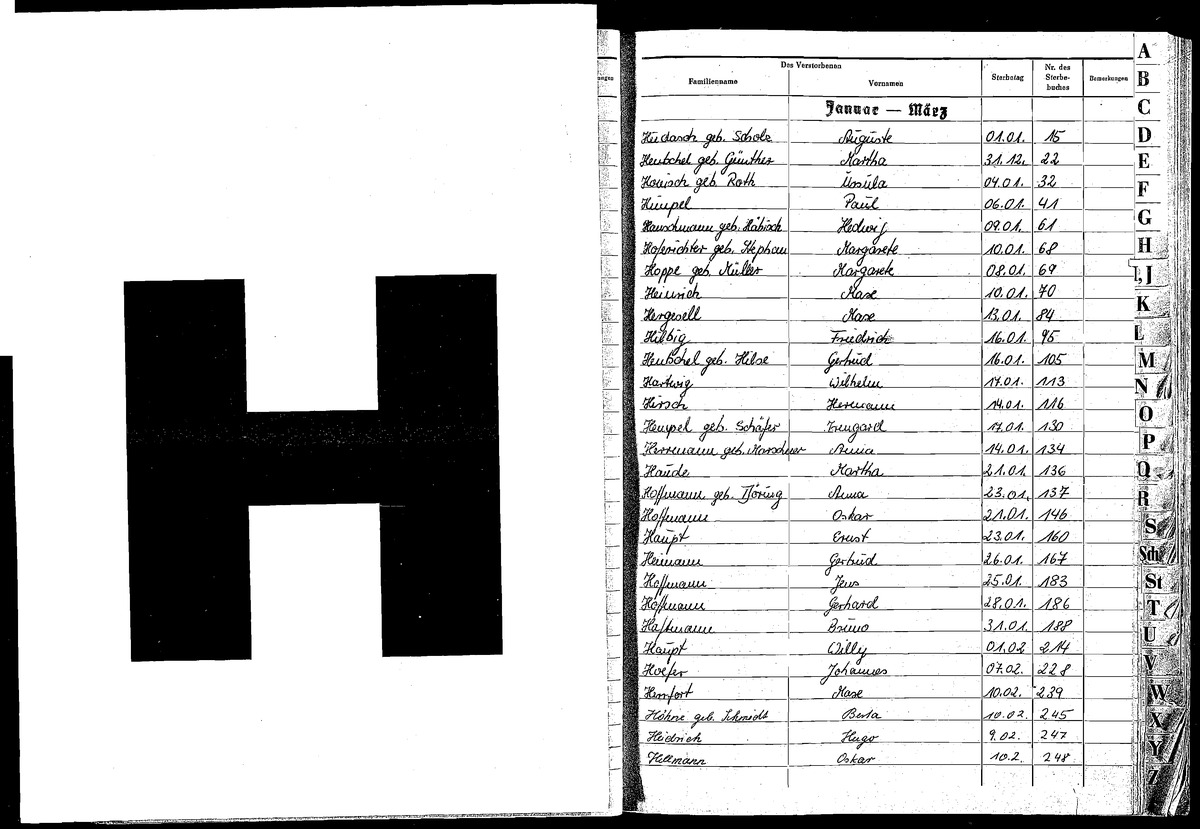 H
Des Verstorbenen
Familienname Vornamen Sterbetag Nr. des Sterbe- buches Bemerkungen
Januar — März
Hudasch geb. Scholz Auguste 01.01. 15
Hentschel geb. Günther Martha 31.12. 22
geb. Roth Ursula 04.01. 32
Hümpel Paul 06.01. 41
Hanschmann geb. Häbisch Hedwig 09.01. 61
Hoferichter geb. Stephan Margarete 10.01. 68
Hoppe geb. Müller Margarete 08.01. 69
Heinrich Max 10.01. 70
Hergesell Max 13.01. 84
Hilbig Friedrich 16.01. 95
Hentschel geb. Hilse Gertrud 16.01. 105
Hartwig Wilhelm 17.01. 113
Hirsch Hermann 14.01. 116
Hempel geb. Schäfer Irmgard 17.01. 130
Herrmann geb. Marschner Anna 14.01. 134
Haude Martha 21.01. 136
Hoffmann geb. Anna 23.01. 137
Hoffmann Oskar 21.01. 146
Haupt Ernst 23.01. 160
Heimann Gertrud 26.01. 167
Hoffmann Jens 25.01. 183
Hoffmann Gerhard 28.01. 186
Haftmann Bruno 31.01. 188
Haupt Willy 01.02 214
Hoefer Johannes 07.02. 228
Max 10.02. 239
Höhne geb. Schmidt Berta 10.02. 245
Heidrich Hugo 9.02. 247
Hillmann Oskar 10.2. 248
A
B
C
D
E
F
G
H
I, J
K
L
M
N
O
P
Q
R
S
Sch
St
T
U
V
W
X
Y
Z